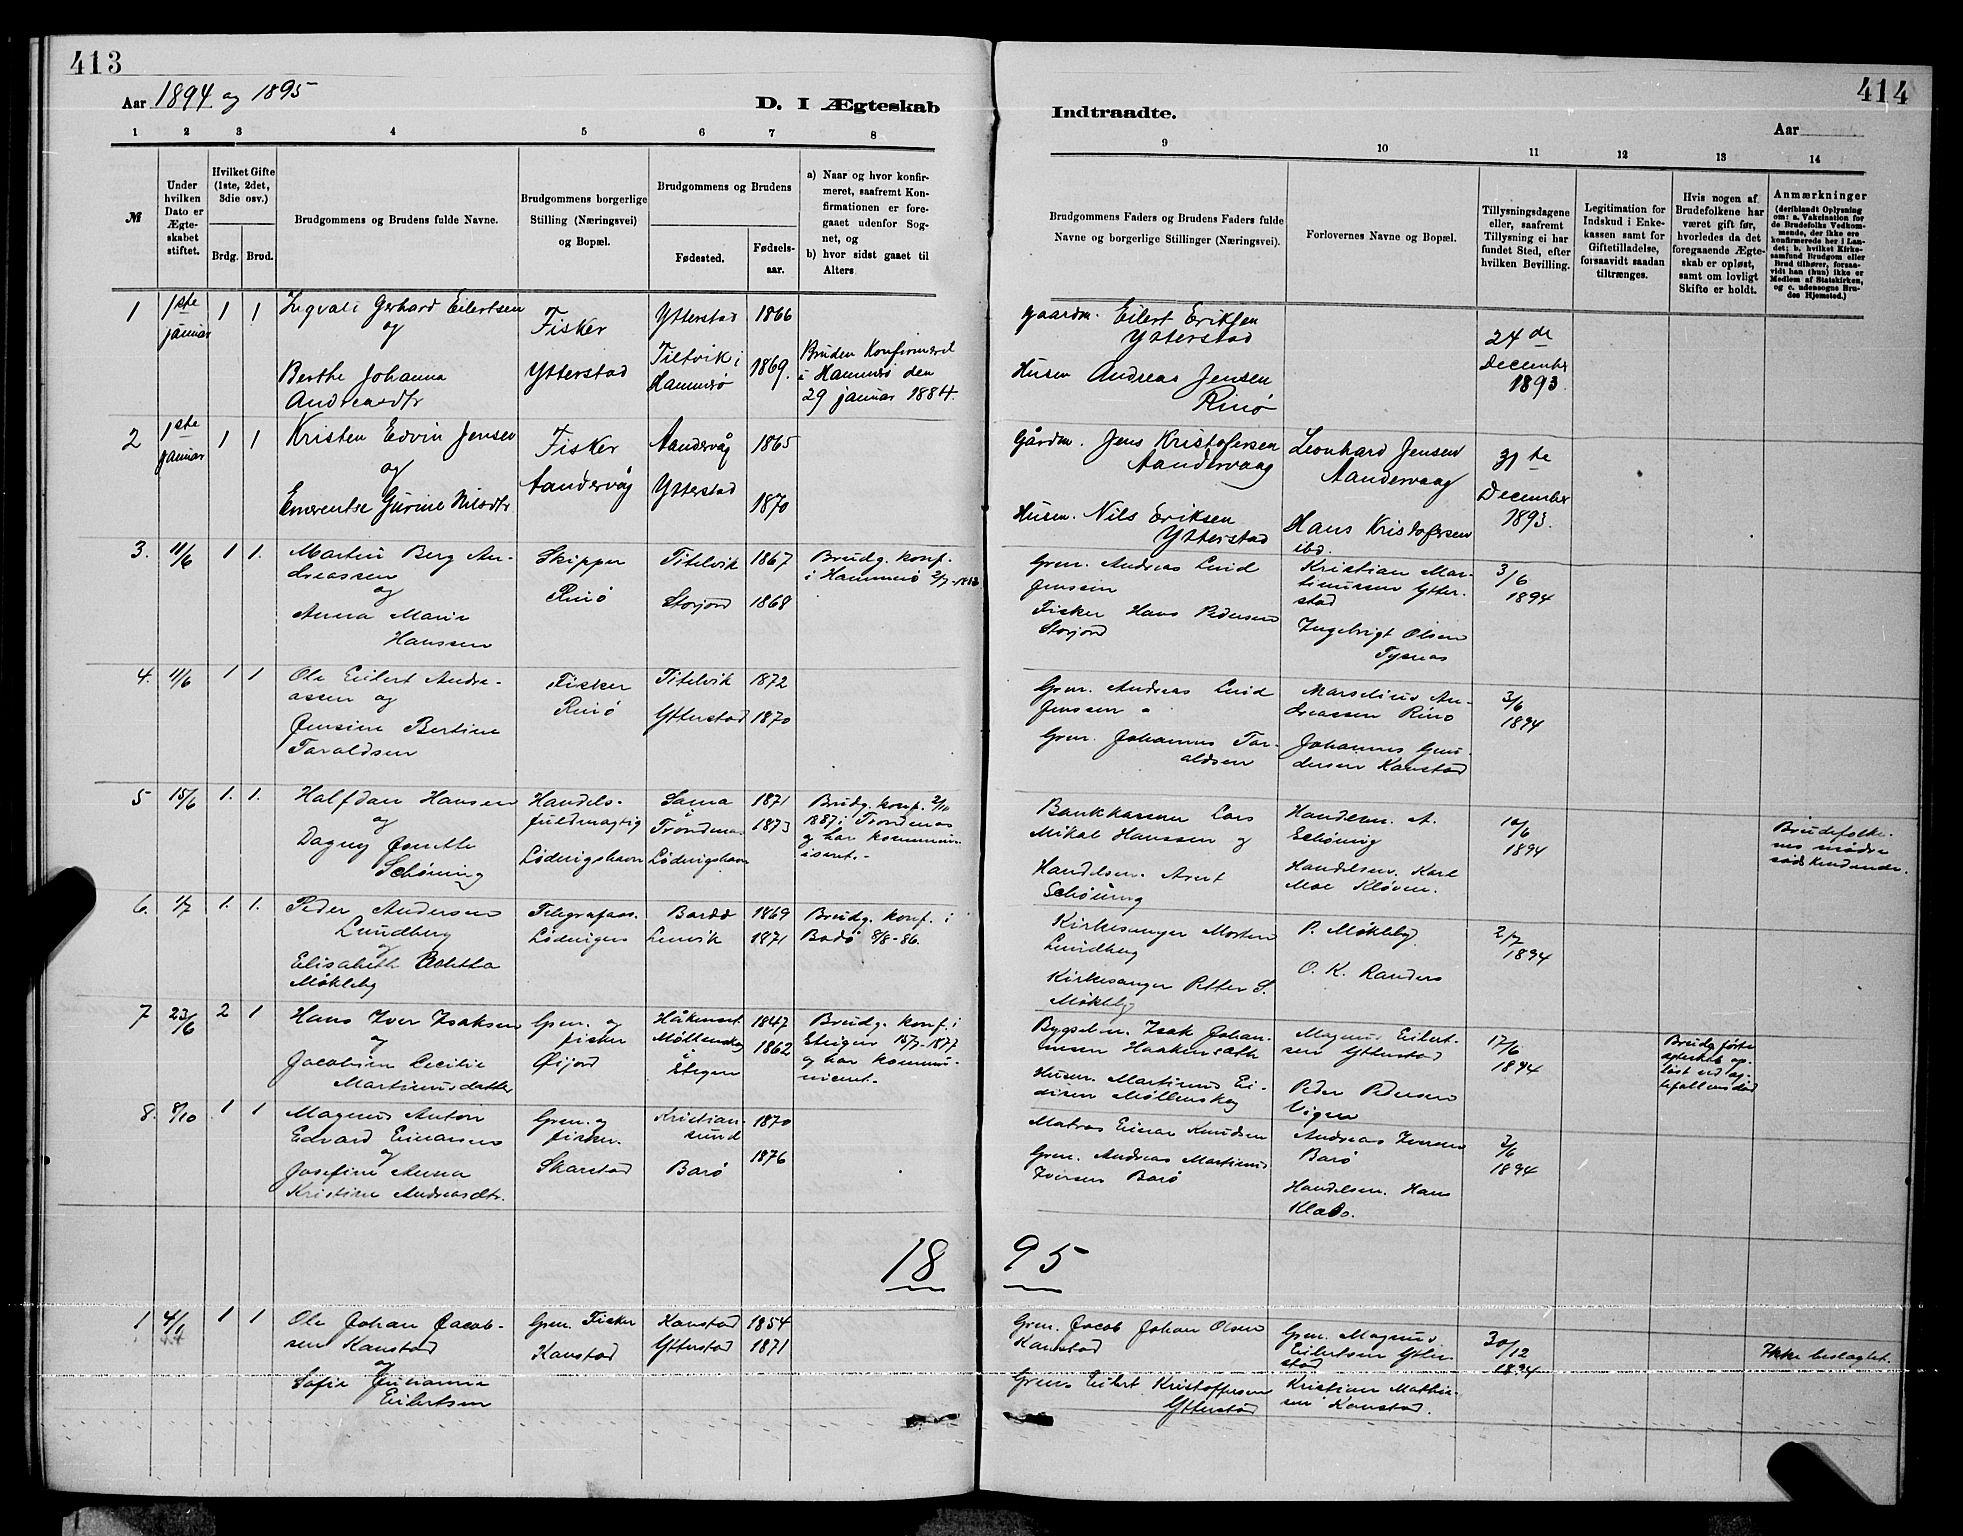 413
414
Aar 1894 og 1895
D. I Ægteskab
Indtraadte.
Aar
1 2 3 4 5 6 7 8
9 10 11 12 13 14
№
Under hvilken Dato er Ægteskabet stiftet.
Hvilket Gifte (1ste, 2det, 3die osv.)
Brdg. Brud.
Brudgommens og Brudens fulde Navne.
Brudgommens borgerlige Stilling (Næringsvei) og Bopæl.
Brudgommens og Brudens
Fødested.
Fødselsaar.
a) Naar og hvor konfirmeret, saafremt Konfirmationen er foregaaet udenfor Sognet, og
b) hvor sidst gaaet til Alters.
Brudgommens Faders og Brudens Faders fulde Navne og borgerlige Stillinger (Næringsvei).
Forlovernes Navne og Bopæl.
Tillysningsdagene eller, saafremt Tillysning ei har fundet Sted, efter hvilken Bevilling.
Legitimation for Indskud i Enkekassen samt for Giftetilladelse, forsaavidt saadan tiltrænges.
Hvis nogen af Brudefolkene har været gift før, hvorledes da det foregaaende Ægteskab er opløst, samt om lovligt Skifte er holdt.
Anmærkninger (deriblandt Oplysning om: a. Vakcination for de Brudefolks Vedkommende, der ikke ere konfirmerede her i Landet; b. hvilket Kirkesamfund Brudgom eller Brud tilhører, forsaavidt han (hun) ikke er Medlem af Statskirken, og c. udensogns Brudes Hjemsted.)
1 1ste januar 1 1
Ingvalt Gerhard Eilertsen
og
Berthe Johanna
Andreasdtr
Fisker
Ytterstad
Ytterstad 1866
Tiltvik i
Hammerø 1869.
Bruden Konfirmeret
i Hammerø den
29 januar 1884.
gaardm. Eilert Eriksen
Ytterstad
Husm Andreas Jensen
Rinø
24 de
December
1893.
2 1ste januar 1 1
Kristen Edvin Jensen
og
Emerentse Gurine Nilsdtr
Fisker
Aandervåg
Aandervåg 1865
Ytterstad
1870
Gårdm. Jens Kristofersen
Aandervaag
Husm. Nils Eriksen
Ytterstad
Leonhard Jensen
Aandervaag
Hans Kristofersen
ibd.
31 te
December
1893.
3. 11/6 1 1.
Martin Berg An-
dreassen
og
Anna Marie
Hanssen
Skipper
Rinø
Titelvik 1867
Storjord 1868
Brudg. konf.
i Hammerø
Grm. Andreas Lind
Jenssen
Fisker Hans Pedersen
Storjord
Kristian Mar-
tinussen Ytter-
stad
Ingebrigt Olsen
Tysnes
3/6
1894
4. 11/6 1 1
Ole Eilert Andre-
asen og
Jensine Bertine
Taraldsen
Fisker
Rinø
Titelvik 1872
Ytterstad 1870
Grm. Andreas Lind
Jenssen
Grm. Johannes Tar-
aldsen
Marselius An-
dreassen Rinø
Johannes Gun-
dersen Kanstad
3/6
1894
5 15/6 1. 1.
Halfdan Hansen
og
Dagny Jenette
Schöning
Handels-
fuldmægtig
Lødingshavn
Sama 1871
Trondenæs 1873
Lødingshavn
Brudg. konf. 2/10
1887 i Trondenæs
og har kommuni-
iseret.-
Bankkasserer Lars
Mikal Hanssen og
Handelsm. Arent
Schöning
Handelsm. A.
Schöning
Handelsm. Karl
Moe Kløven.
10/6
1894
Brudefolke-
nes mødre
sødskendende.
6. 1/7 1. 1.
Peder Andersen
Lundberg
og
Elisabeth
Møkleby
Telegrafass.
Lødingen
Bardø 1869
Lenvik 1871
Brudg. konf. i
Bodø 8/8-86.
Kirkesanger Morten
Lundberg
Kirkesanger Petter S.
Møkleby
P. Møkleby
O. K. Randers
2/7
1894
7 23/6 2 1
Hans Iver Isaksen
og
Jacobine Cecilie
Martinusdatter
Grm. og
fisker
Øijord
Håkenset 1847
Möllenskog 1862
i
Steigen
Brudg. konf. i
Steigen 15/7-1877
og har kommu-
niceret.-
Bygselm. Isak Johan-
nesen Haakensæth
Husm. Martinus Ei-
dissen Møllenskog
Magnus Eilert-
sen Ytterstad
Peder Pedersen
Vigen
17/6
1894
Brudg. første
ægteskab op-
løst ved æg-
tefællens død
8. 8/10 1 1
Magnus Anton
Edvard Einarsen
og
Josefine Anna
Kristine Andreasdtr.
Grm. og
fisker.
Skarstad
Kristian-
sund 1870
Barø 1876
Matros Einar Knudsen
Grm. Andreas Martinus
Iversen Barø
Andreas Iversen
Barø
Handelsm. Hans
Klæbo.
3/6
1894
1895
1 4/1 1 1
Ole Johan Jacob-
sen Kanstad
og
Sofie Julianna
Eilertsen
Grm. Fisker
Kanstad
Kanstad 1854
Ytterstad 1871
Grm. Jacob Johan Olsen
Kanstad
Grm. Eilert Kristoffersen
Ytterstad
Grm. Magnus
Eilertsen Ytter-
stad
Kristian Mathi-
sen Kanstad.
30/12
1894
Ikke beslægtet.